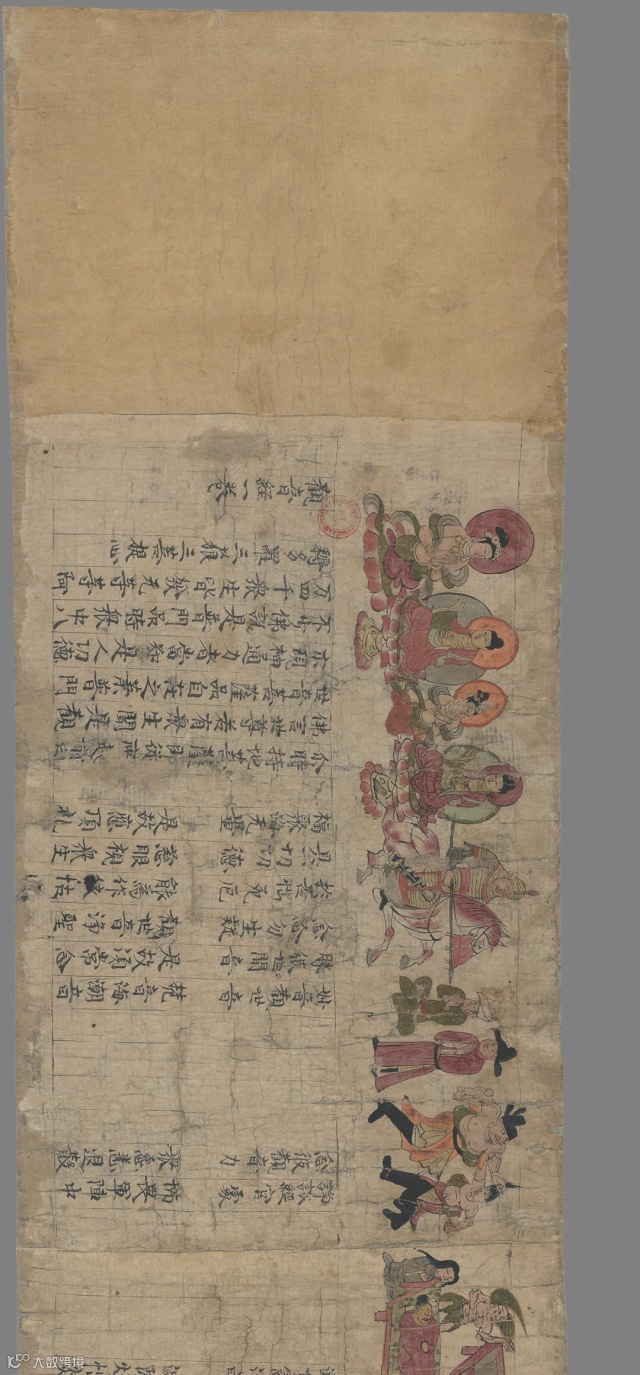 諍訟經官處　怖畏軍陣中
念彼觀音力　衆怨悉退散
妙音觀世音　梵音海潮音
勝彼世間音　是故須常念
念念勿生疑　觀世音淨聖
於苦惱死厄　能為作依怙
具一切功德　慈眼視衆生
福聚海无量　是故應頂礼
尒時持地菩薩即從座起前白
佛言世尊若有衆生聞是觀
世音菩薩品自在之業普門
示現神通力者當知是人功德
不少佛說是普門品時衆中八
万四千衆生皆發无等等阿
耨多羅三藐三菩提心
觀音經一卷
大数跨境